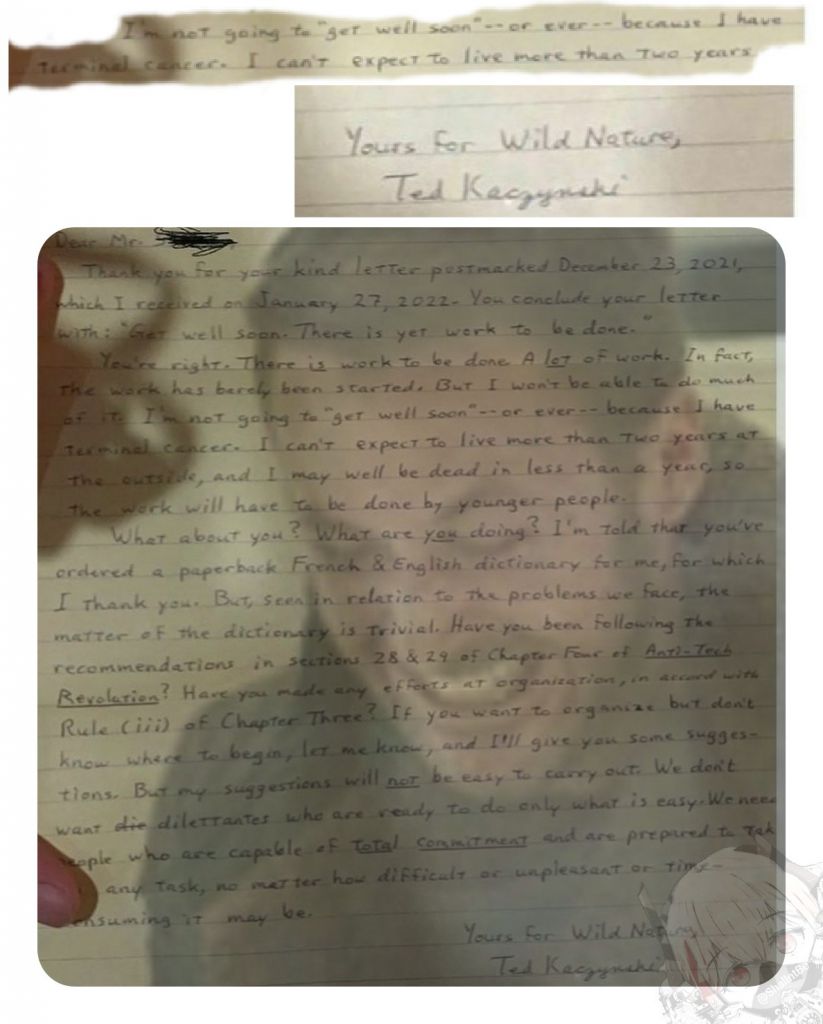 I'm not going to "get well soon"--or ever--because I have
terminal cancer. I can't expect to live more than two years
Yours for Wild Nature,
Ted Kaczynski
Dear Mr.
Thank you for your kind letter postmarked December 23, 2021,
which I received on January 27, 2022. You conclude your letter
with: "Get well soon. There is yet work to be done."
You're right. There is work to be done. A lot of work. In fact,
the work has barely been started. But I won't be able to do much
of it. I'm not going to "get well soon"--or ever--because I have
terminal cancer. I can't expect to live more than two years at
the outside, and I may well be dead in less than a year, so
the work will have to be done by younger people.
What about you? What are you doing? I'm told that you've
ordered a paperback French & English dictionary for me, for which
I thank you. But, seen in relation to the problems we face, the
matter of the dictionary is trivial. Have you been following the
recommendations in sections 28 & 29 of Chapter Four of Anti-Tech
Revolution? Have you made any efforts at organization, in accord with
Rule (iii) of Chapter Three? If you want to organize but don't
know where to begin, let me know, and I'll give you some sugges-
tions. But my suggestions will not be easy to carry out. We don't
want die dilettantes who are ready to do only what is easy. We need
people who are capable of total commitment and are prepared to tak
any task, no matter how difficult or unpleasant or time-
consuming it may be.
Yours for Wild Nature,
Ted Kaczynski